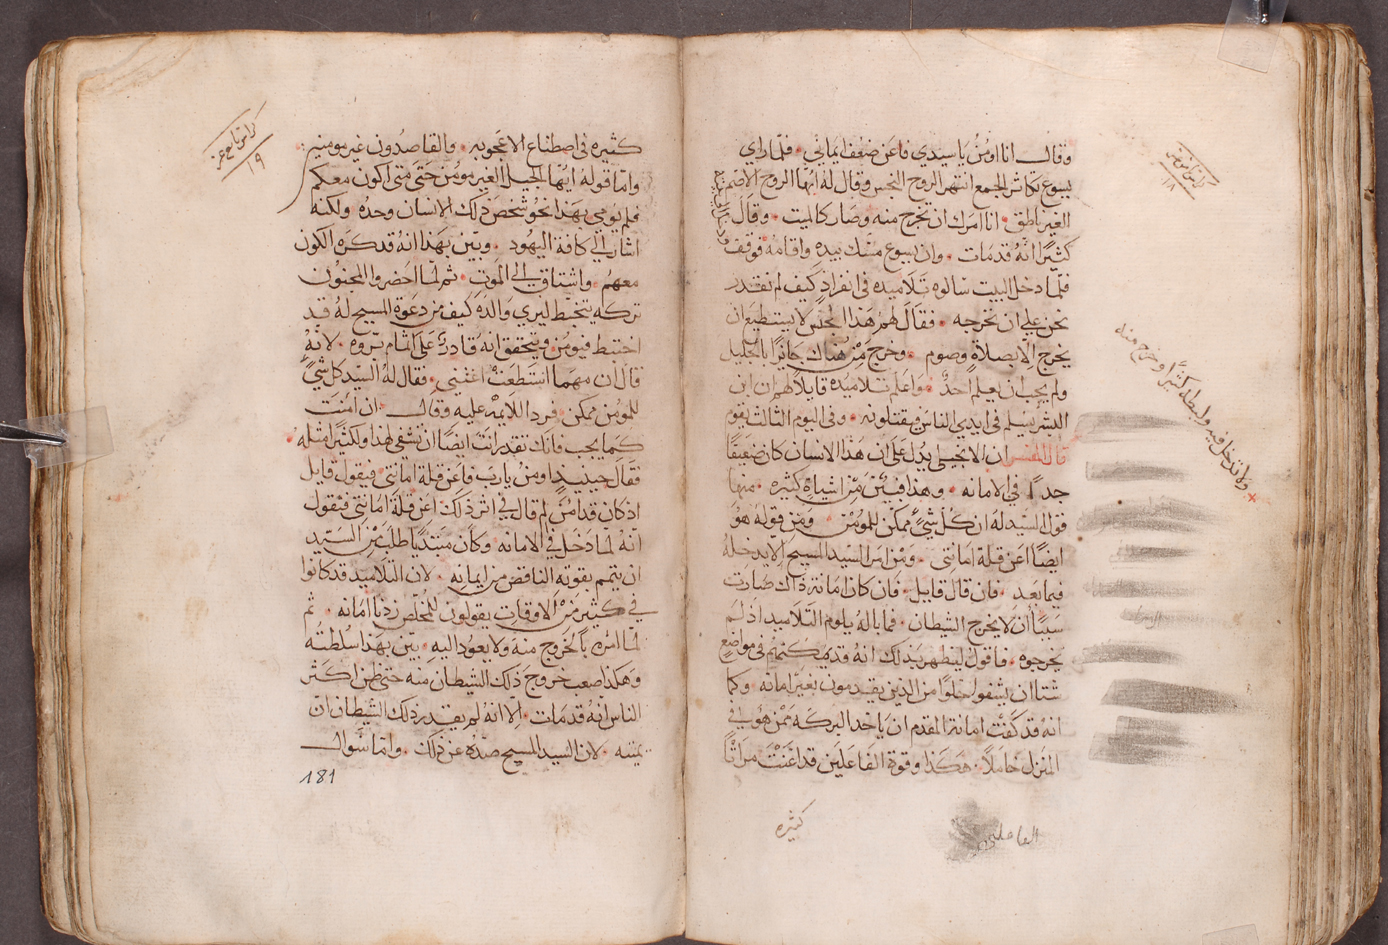 وقال انا اومن ياسيدي فاعن ضعف ايماني • فلما راي
يسوع تكاثر الجمع انتهر الروح النجس وقال له ايها الروح الاصم
الغير ناطق • انا امرك ان تخرج منه وصار كالميت • وقال
كثيرًا انه قدمات • وان يسوع مسك بيده واقامه فوقف
فلما دخل البيت سالوه تلاميده في انفرادٍ كيف لم نقدر
نحن علي ان نخرجه • فقال لهم هذا الجنس لا يستطيع ان
يخرج الا بصلاة وصوم • وخرج من هناك جايزًا بالجليل
ولم يحب ان يعلم احدٌ • واعلم تلاميده قايلاً لهم ان ابن
البشر يسلم في ايدي الناس فيقتلونه • وفي اليوم الثالث يقوم
قال المفسر ان الانجيلي يدل علي ان هذا الانسان كان ضعيفًا
جدًا في الامانه • وهذا فبين من اشياء كثيره • منها
قول السيد له ان كل شيءٍ ممكن للمومن • ومن قوله هو
ايضًا اعن قلة امانتي • ومن امر السيد المسيح الا يدخله
فيما بعد • فان قال قايل • فان كان امانة ذاك صارت
سببًا ان لا يخرج الشيطان • فما باله يلوم التلاميد اذ لم
يخرجوه • فاقول ليظهر بذلك انه قد يمكنهم في مواضع
شتا ان يشفوا خلوًا من الذين يقدمون بغير امانه • وكما
انه قد كفت امانة المقدم ان ياخد البركه ممن هو في
المنزل خاملاً • هكذا وقوة الفاعلين قد اغنت مرارًا
كثيره
الفاعلين
ولا تدخل فيه وليطه كثيرًا وخرج منه
كثيره في اصطناع الاعجوبه • والقاصدون غير مومنين
واما قوله ايها الجيل الغير مومن حتي متي اكون معكم
فلم يومي بهذا نحو شخص ذلك الانسان وحده • ولكنه
اشار الي كافة اليهود • وبين بهذا انه قد كره الكون
معهم • واشتاق الي الموت • ثم لما احضروا المجنون
تركه يتخبط ليري والده كيف من دعوة المسيح له قد
اختبط فيومن • ويتحقق انه قادرٌ علي اتمام تروه • لانه
قال ان مهما استطعت اغثني • فقال له السيد كل شيءٍ
للمومن ممكن • فرد اللايمه عليه وقال ان امنت
كما يجب فانك تقدر انت ايضًا ان تشفي لهذا ولكثيرًا مثله •
فقال حينيدٍ اومن يارب فاعن قلة امانتي • فيقول قايل
اذ كان قد امن لم قال في اثر ذلك اعن قلة امانتي • فيقول
انه لما دخل في الامانه • وكان مبتديًا طلب من السيد
ان يتمم بقوته الناقص من ايمانه • لان التلاميد قد كانوا
في كثير من الاوقات يقولون للمخلص زدنا امانه • ثم
لما امره بالخروج منه ولا يعود اليه • بين بهذا سلطته
وهكذا صعب خروج ذلك الشيطان منه حتي ظن اكثر
الناس انه قدمات • الا انه لم يقدر ذلك الشيطان ان
يميته • لان السيد المسيح صده عن ذلك • واما سوال
181
١٩